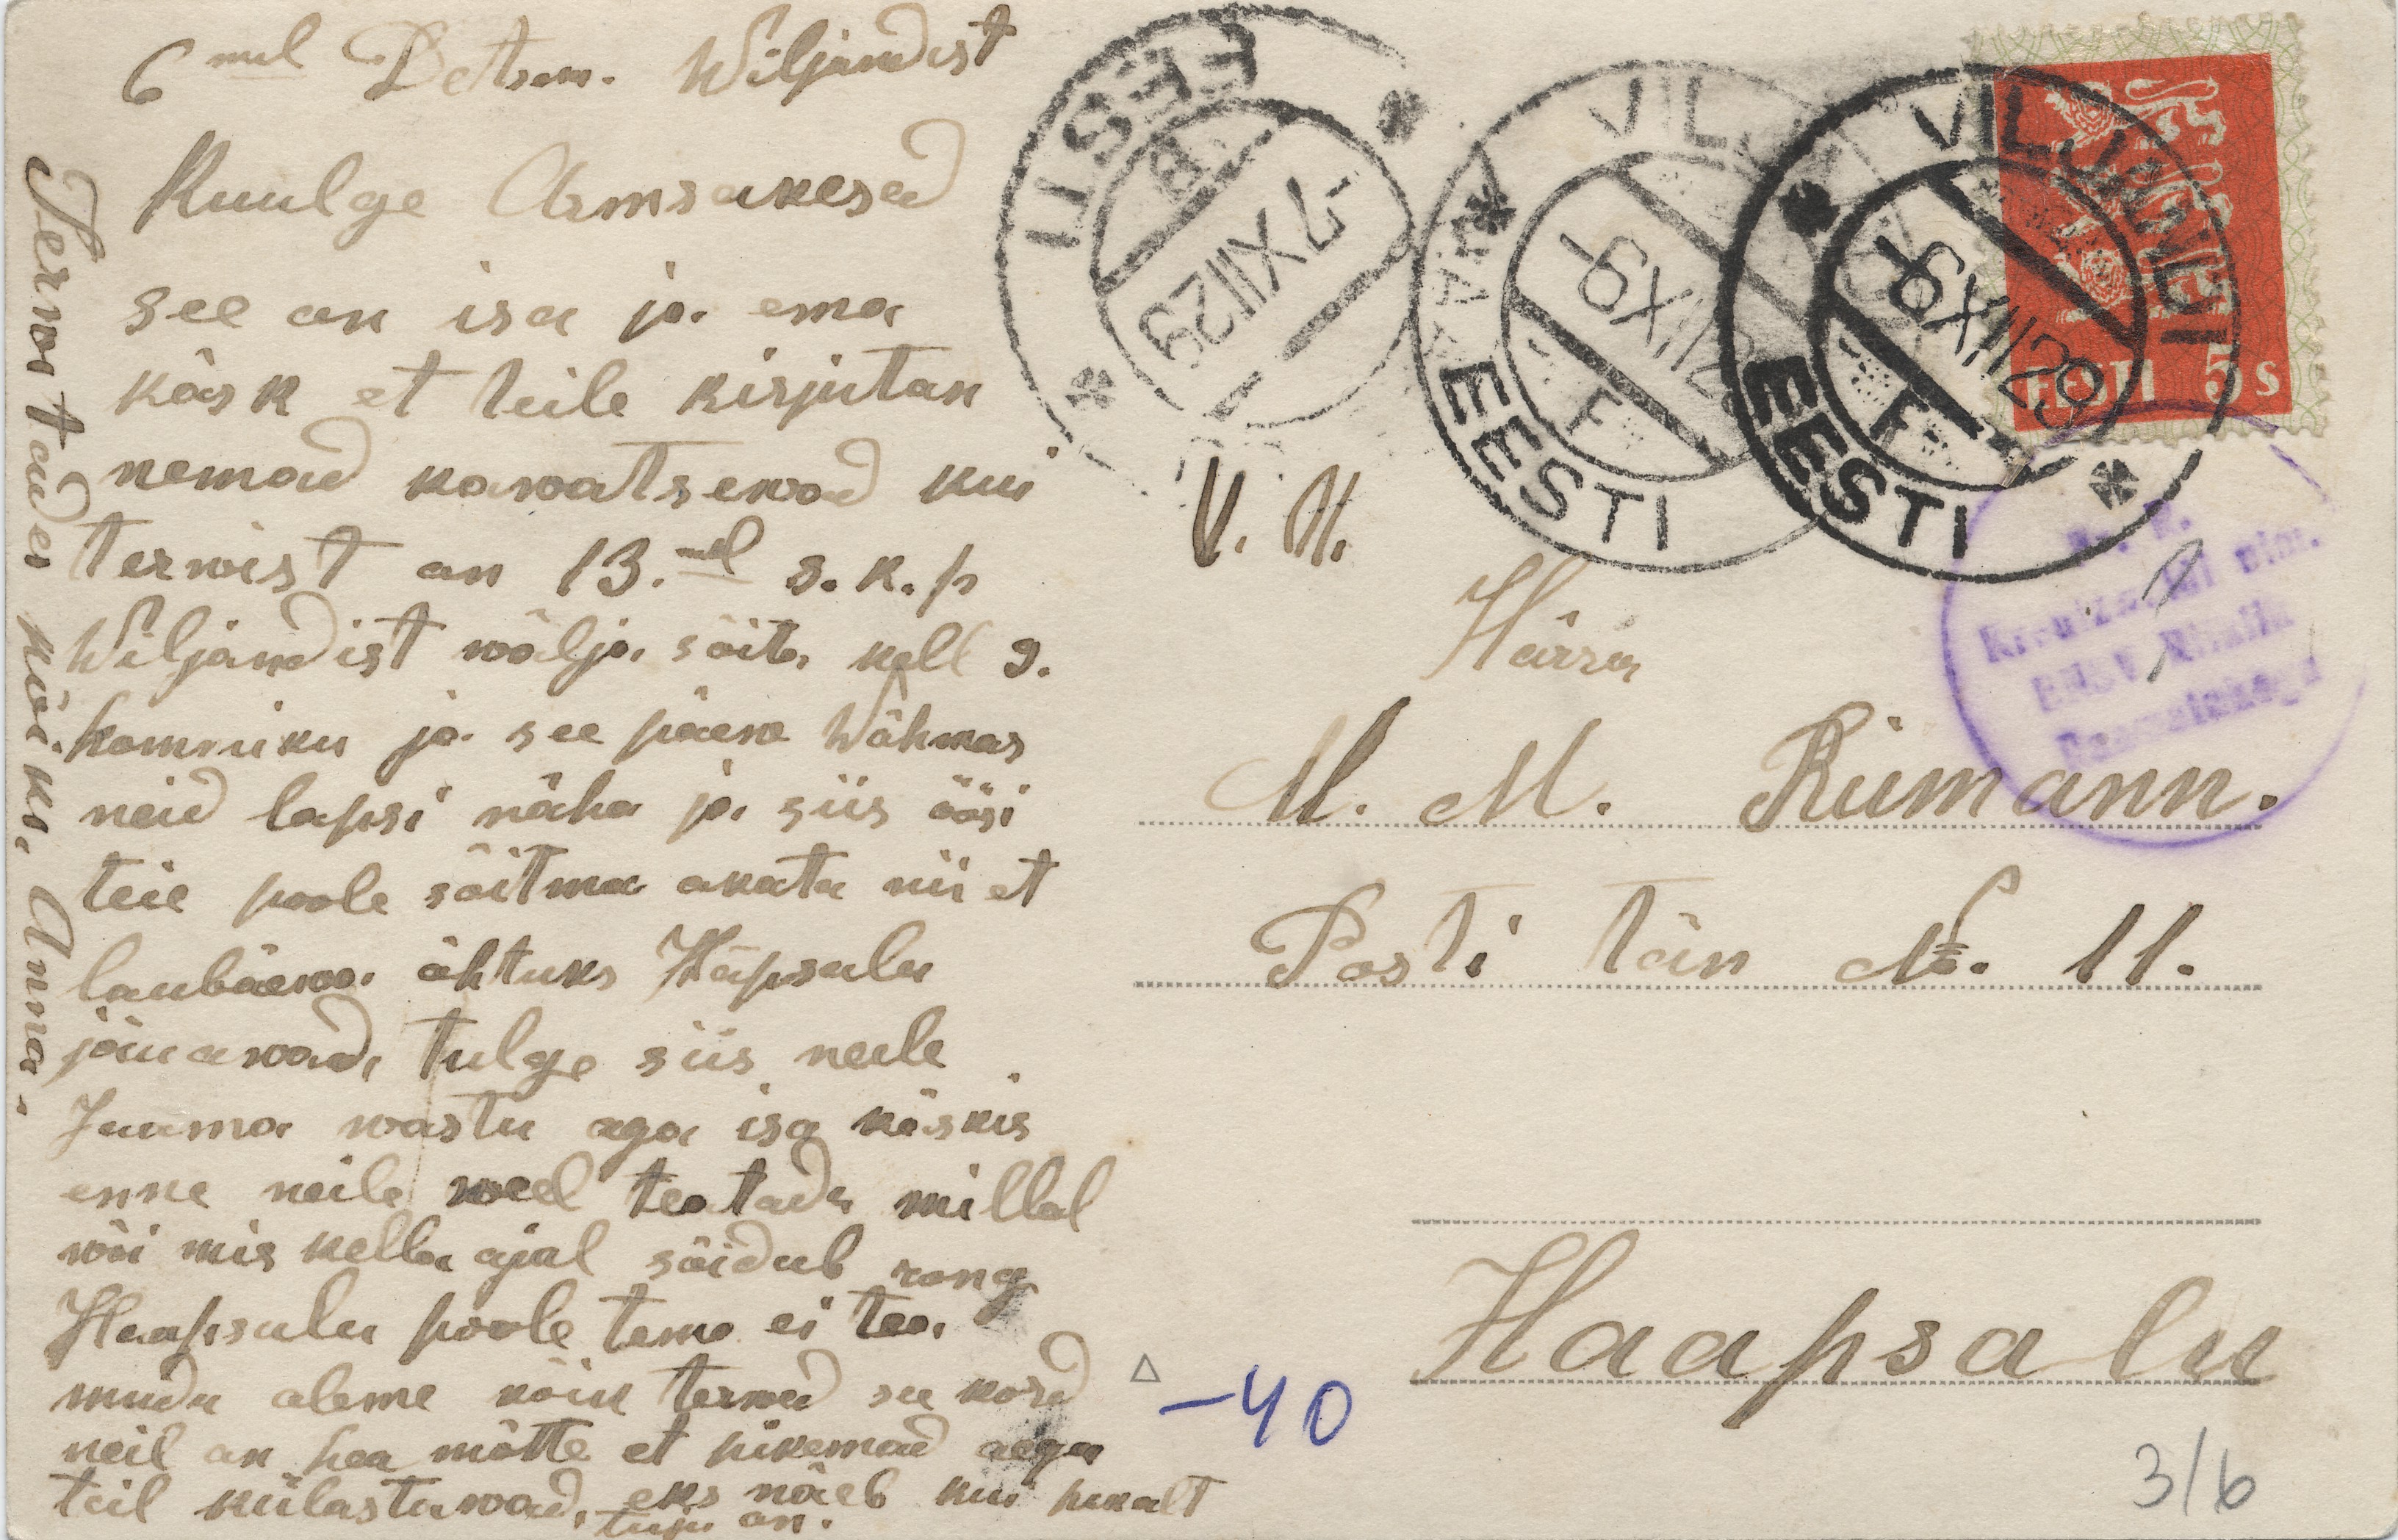 6 mel Detsem. Wiljandist
Kuulge Armsakesed
see on isa ja ema
käsk et teile kirjutan
nemad kawatsewad kui
terwist on 13. mel s. k. p
Wiljandist wälja sõita kell 9.
hommiku ja see päew Wõhmas
neid lapsi näha ja siis öösi
teie poole sõitma akata nii et
laubäewa õhtuks Hapsalu
jõuawad, tulge siis neile
Jaama wastu aga isa käskis
enne neile weel teatada millal
wõi mis kella ajal sõidub rong
Haapsalu poole tema ei tea.
muidu oleme kõik terwed see kord
neil on hea mõtte et pikemad aega
teil külastawad, eks näeb kui pikalt
tuju on.
Terwitades kõiki, Anna.
EESTI
B
-7 XII 29
VILJANDI
-6 XII 29
F
EESTI
VILJANDI
-6 XII 29
F
EESTI
EESTI 5 S
V. M.
Härra
M. M. Riimann.
Posti tän No. 11.
Haapsalu
-40
3/6